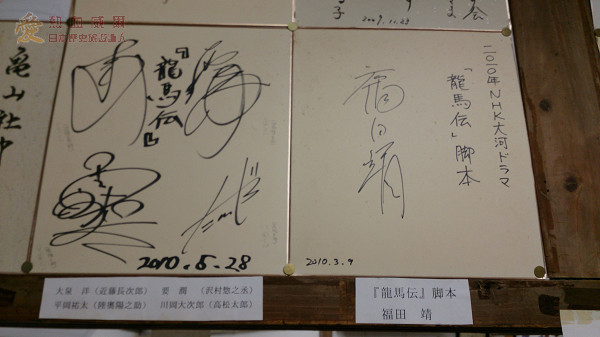 愛 熱血威爾
日本歷史旅遊達人
2009.11.23
会
子
亀山社中
『龍馬伝』
2010.5.28
二〇一〇年NHK大河ドラマ
「龍馬伝」脚本
福田靖
2010.3.9
大泉 洋(近藤長次郎) 要 潤 (沢村惣之丞)
平岡祐太(陸奥陽之助) 川岡大次郎(高松太郎)
『龍馬伝』脚本
福田 靖